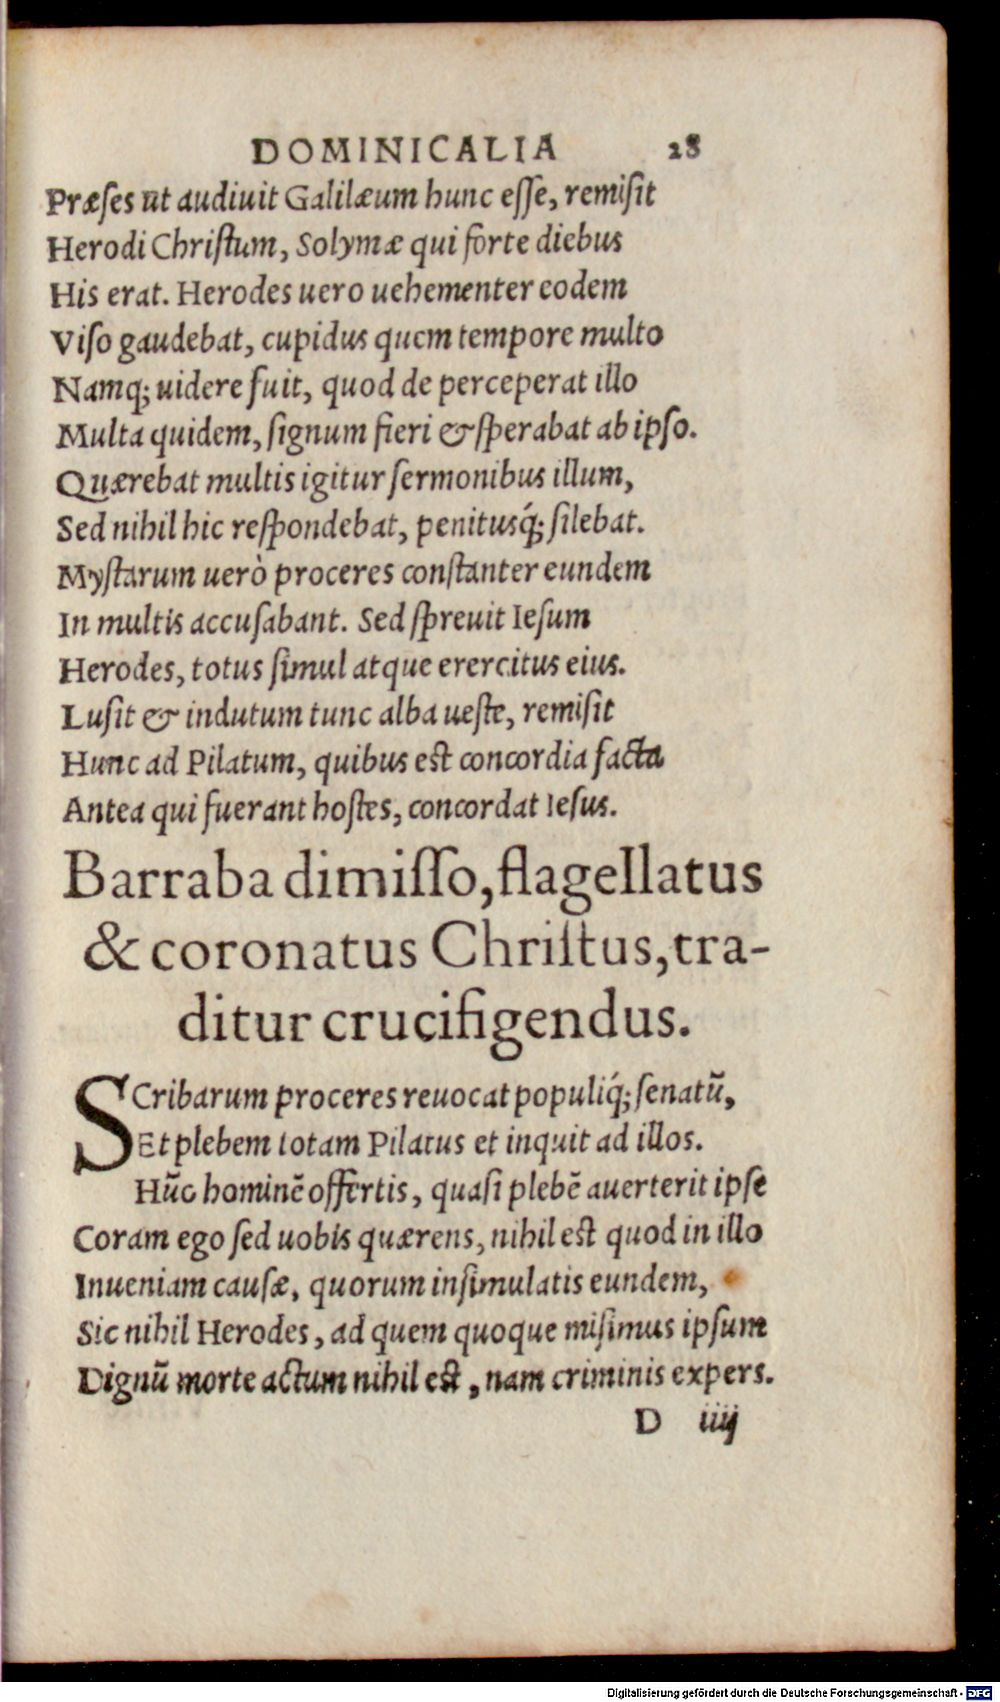 DOMINICALIA 28
Præſes ut audiuit Galilæum hunc eſſe, remiſit
Herodi Chriſtum, Solymæ qui forte diebus
His erat. Herodes uero uehementer eodem
Viſo gaudebat, cupidus quem tempore multo
Namq; uidere fuit, quod de perceperat illo
Multa quidem, ſignum fieri & ſperabat ab ipſo.
Quærebat multis igitur ſermonibus illum,
Sed nihil hic reſpondebat, penitusq́; ſilebat.
Myſtarum uerò proceres conſtanter eundem
In multis accuſabant. Sed ſpreuit Ieſum
Herodes, totus ſimul atque erercitus eius.
Luſit & indutum tunc alba ueſte, remiſit
Hunc ad Pilatum, quibus est concordia facta
Antea qui fuerant hoſtes, concordat Ieſus.
Barraba dimiſſo, flagellatus
& coronatus Chriſtus, tra-
ditur crucifigendus.
SCribarum proceres reuocat populiq́; ſenatū,
Et plebem totam Pilatus et inquit ad illos.
Hūc hominē offertis, quaſi plebē auerterit ipſe
Coram ego ſed uobis quærens, nihil est quod in illo
Inueniam cauſæ, quorum inſimulatis eundem,
Sic nihil Herodes, ad quem quoque miſimus ipſum
Dignū morte actum nihil est, nam criminis expers.
D iiij
Digitalisierung gefördert durch die Deutsche Forschungsgemeinschaft - DFG